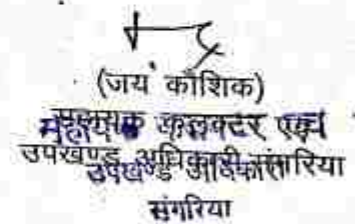 (जय कौशिक)
सहायक कलक्टर एवं
उपखण्ड अधिकारी संगरिया
संगरिया